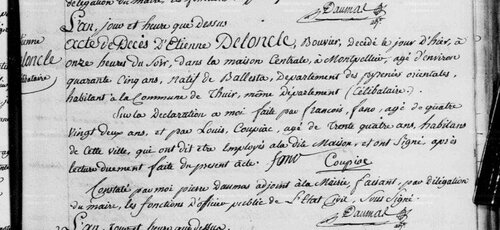 délégation du maire, les fonctions
Daumas
L'an, jour et heure que dessus
Acte de Décès D'Etienne Deloncle, Bouvier, décédé le jour d'hier, à
onze heures du Soir, dans la maison Centrale, à Montpellier, agé d'environ
quarante Cinq ans, natif de Ballesta, département des pyrenées orientales,
habitant à la Commune de Thuir, même Département (Célibataire).
Sur la Déclaration à moi faite par françois, fano, agé de quatre
vingt deux ans, et par Louis, Coupiac, agé de Trente quatre ans, habitans
de Cette ville, qui ont dit être Employés à la dite Maison, et ont Signé, après
lecture dument faite du présent acte. fano Coupiac
Constaté par moi pierre Daumas adjoint à la Mairie, faisant, par délégation
du maire, les fonctions d'officier public de L'Etat Civil, Sous Signé.
Daumas
L'an, jour et heure que dessus.
tienne
eloncle
libataire